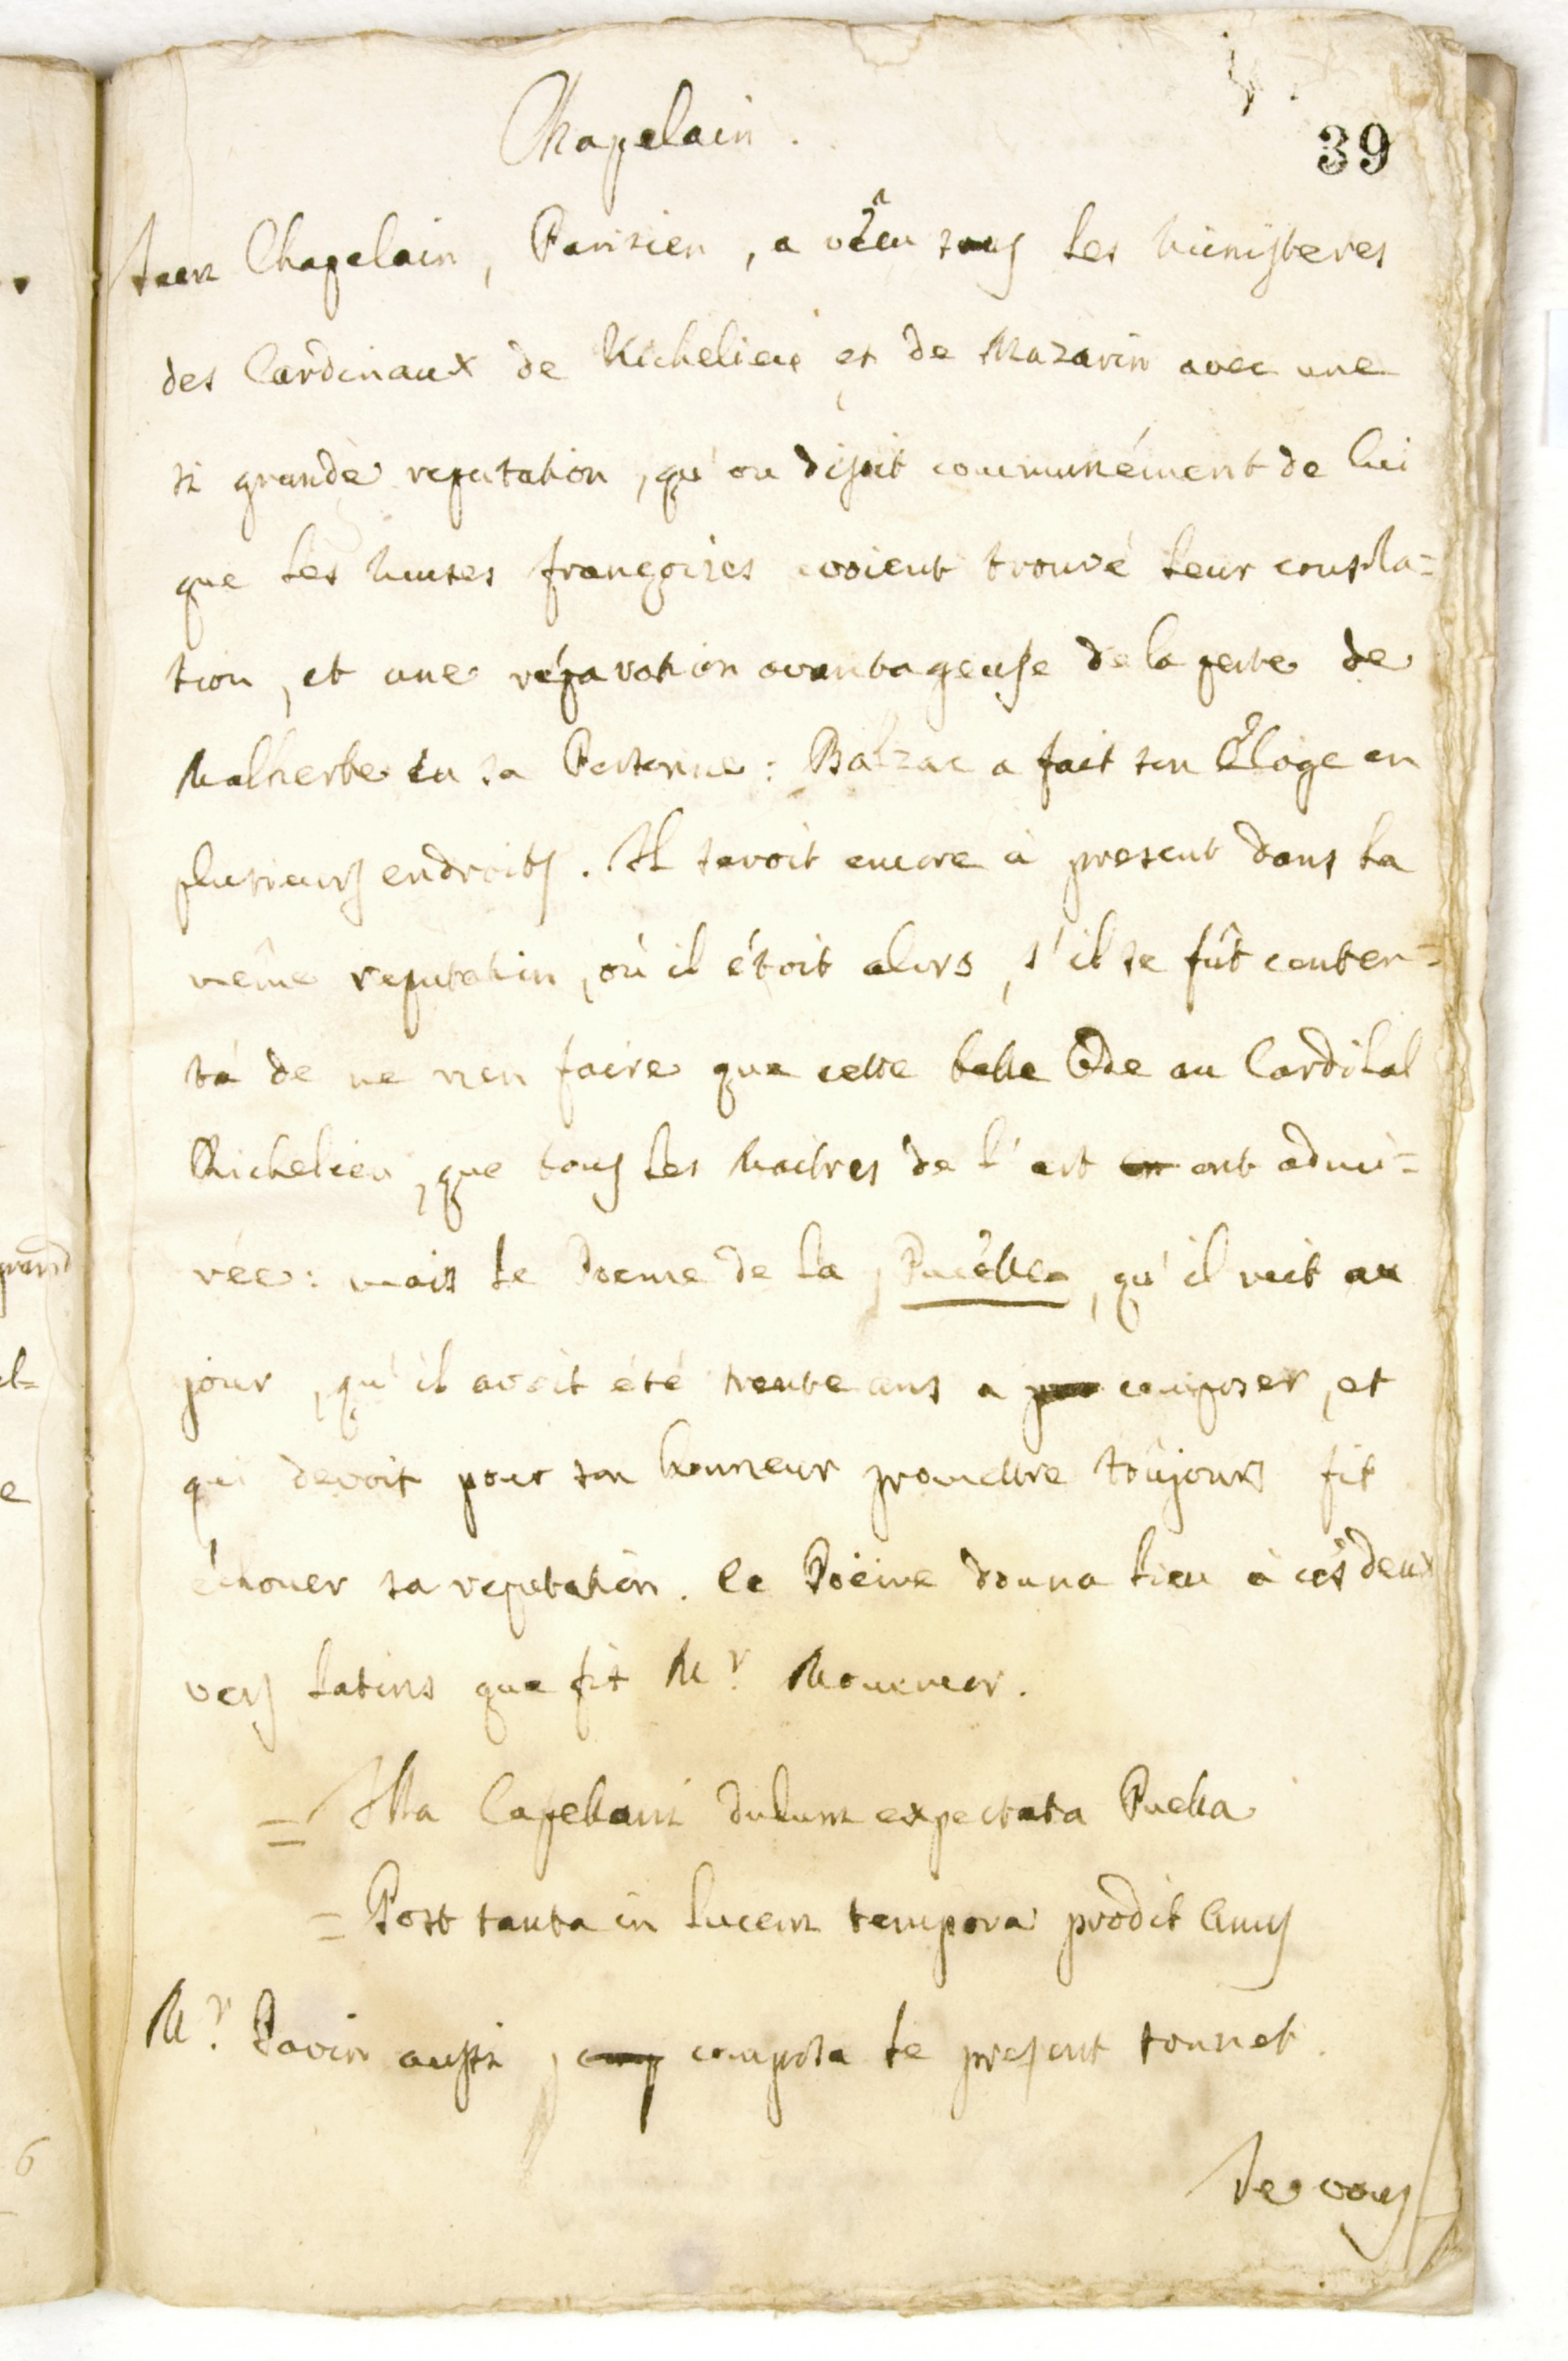 Chapelain.
39
Jean Chapelain, Parisien, a vêcu sous les ministeres
des Cardinaux de Richelieu et de Mazarin avec une
si grande reputation, qu'on disoit communément de lui
que les muses françoises avoient trouvé leur consola=
tion, et une réparation avantageuse de la perte de
Malherbe en sa Personne : Balzac a fait son Éloge en
plusieurs endroits. Il seroit encore à present dans la
même reputation, où il étoit alors, s'il se fût conten=
té de ne rien faire que cette belle Ode au Cardinal
Richelieu, que tous les Maitres de l'art en ont admi=
rée : mais le Poeme de la Pucelle, qu'il mit au
jour, qu'il avoit été trente ans a composer, et
qui devoit pour son honneur promettre toûjours fit
échouer sa reputation. Ce Poëme donna lieu à ces deux
vers latins que fit Mr. Monmor.
= Illa Capellani dudum expectata Puella
= Post tanta in lucem tempora prodit Anus
Mr. Pavin aussi, comp composa le present sonnet.
Je vous